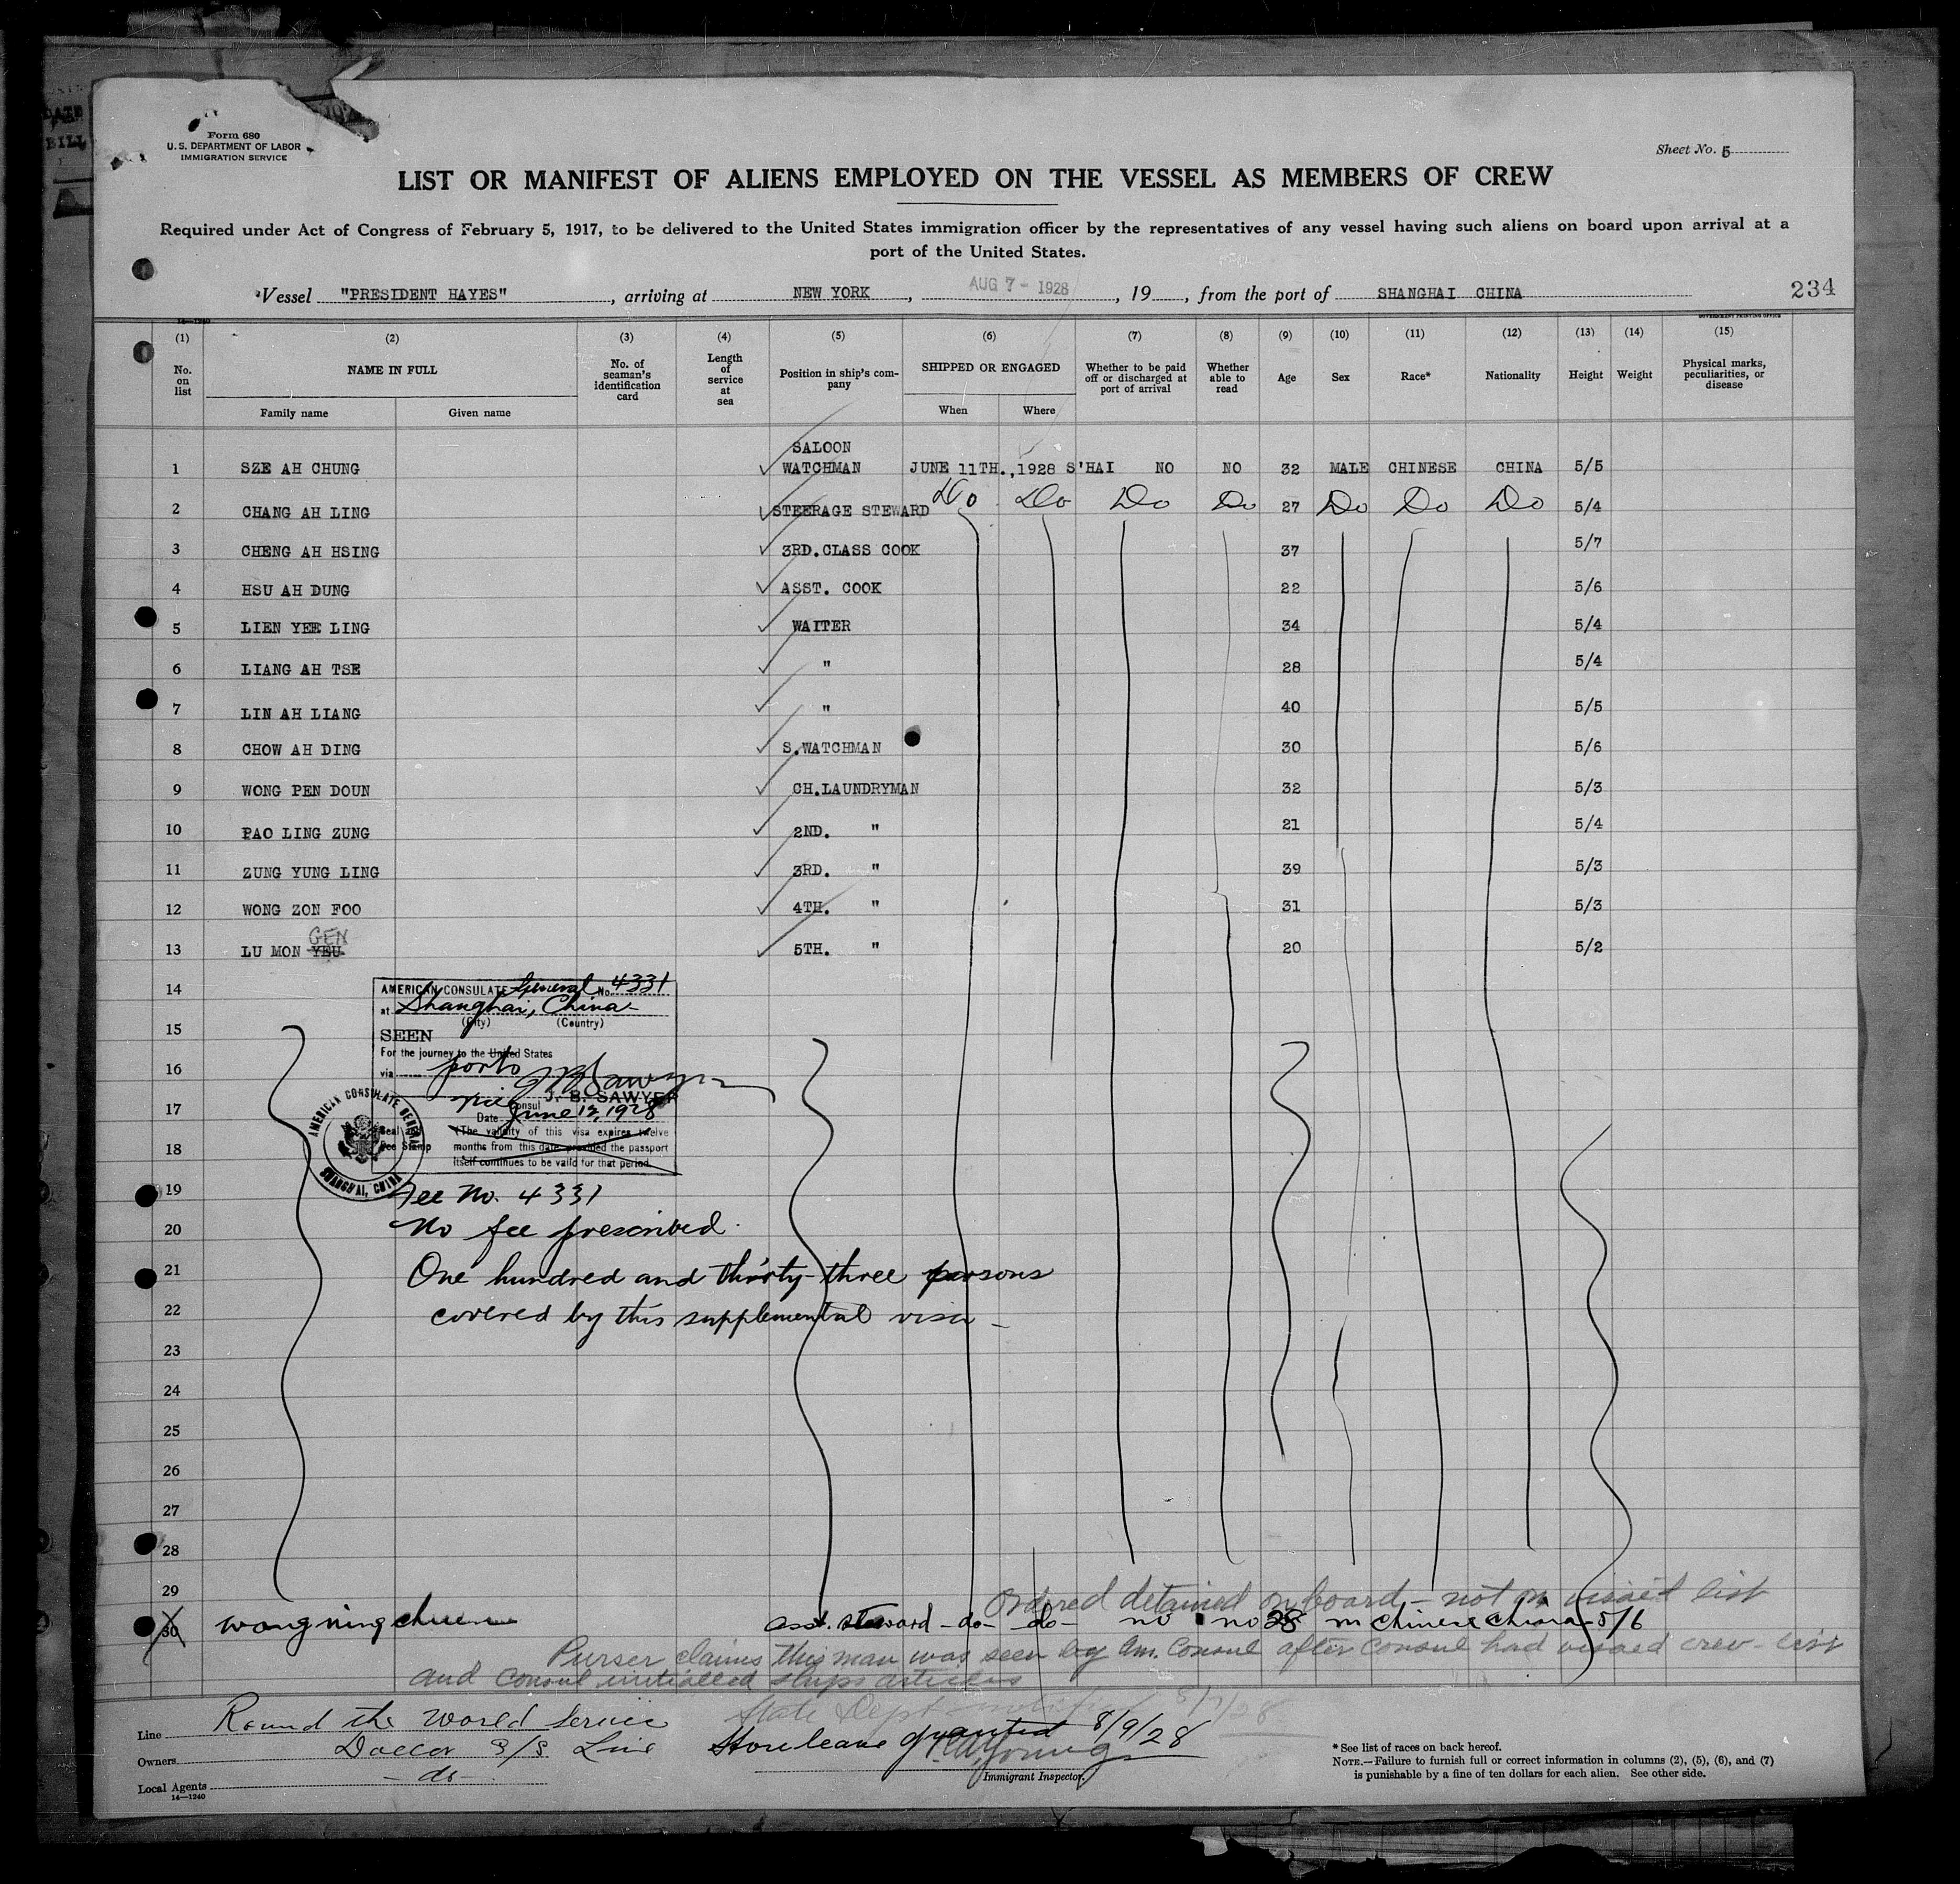 Form 680
U. S. DEPARTMENT OF LABOR
IMMIGRATION SERVICE
Sheet No. 5
LIST OR MANIFEST OF ALIENS EMPLOYED ON THE VESSEL AS MEMBERS OF CREW
Required under Act of Congress of February 5, 1917, to be delivered to the United States immigration officer by the representatives of any vessel having such aliens on board upon arrival at a
port of the United States.
Vessel "PRESIDENT HAYES", arriving at NEW YORK, AUG 7 - 1928, 19, from the port of SHANGHAI CHINA 234
(1) (2) (3) (4) (5) (6) (7) (8) (9) (10) (11) (12) (13) (14) (15)
No. on list NAME IN FULL Family name Given name No. of seaman's identification card Length of service at sea Position in ship's company SHIPPED OR ENGAGED When Where Whether to be paid off or discharged at port of arrival Whether able to read Age Sex Race* Nationality Height Weight Physical marks, peculiarities, or disease
1 SZE AH CHUNG SALOON WATCHMAN JUNE 11TH.,1928 S'HAI NO NO 32 MALE CHINESE CHINA 5/5
2 CHANG AH LING STEERAGE STEWARD Do Do Do Do 27 Do Do Do 5/4
3 CHENG AH HSING 3RD.CLASS COOK 37 5/7
4 HSU AH DUNG ASST. COOK 22 5/6
5 LIEN YEE LING WAITER 34 5/4
6 LIANG AH TSE " 28 5/4
7 LIN AH LIANG " 40 5/5
8 CHOW AH DING S.WATCHMAN 30 5/6
9 WONG PEN DOUN CH.LAUNDRYMAN 32 5/3
10 PAO LING ZUNG 2ND. " 21 5/4
11 ZUNG YUNG LING 3RD. " 39 5/3
12 WONG ZON FOO 4TH. " 31 5/3
GEN
13 LU MON YEU 5TH. " 20 5/2
14
15
16
17
18
19
20
21
22
23
24
25
26
27
28
29
AMERICAN CONSULATE General No. 4331
at Shanghai, China
(City) (Country)
SEEN
For the journey to the United States
via ports
J. B. SAWYER
Consul
Date June 12, 1928
(The validity of this visa expires twelve
months from this date provided the passport
itself continues to be valid for that period.
Seal and
Fee Stamp
AMERICAN CONSULATE GENERAL
SHANGHAI, CHINA
Fee No. 4331
No fee prescribed.
One hundred and thirty-three persons
covered by this supplemental visa
Ordered detained on board - not on visaed list
30 Wong ning chuen asst. steward - do - do - no no 28 m Chinese China 5/6
Purser claims this man was seen by Am. Consul after Consul had visaed crew-list
and Consul initialled ships articles
State Dept
Line Round the World Service
Shore leave granted 8/9/28
Owners Dollar S/S Line
Local Agents - do -
14—1240
Immigrant Inspector.
* See list of races on back hereof.
NOTE.—Failure to furnish full or correct information in columns (2), (5), (6), and (7)
is punishable by a fine of ten dollars for each alien. See other side.